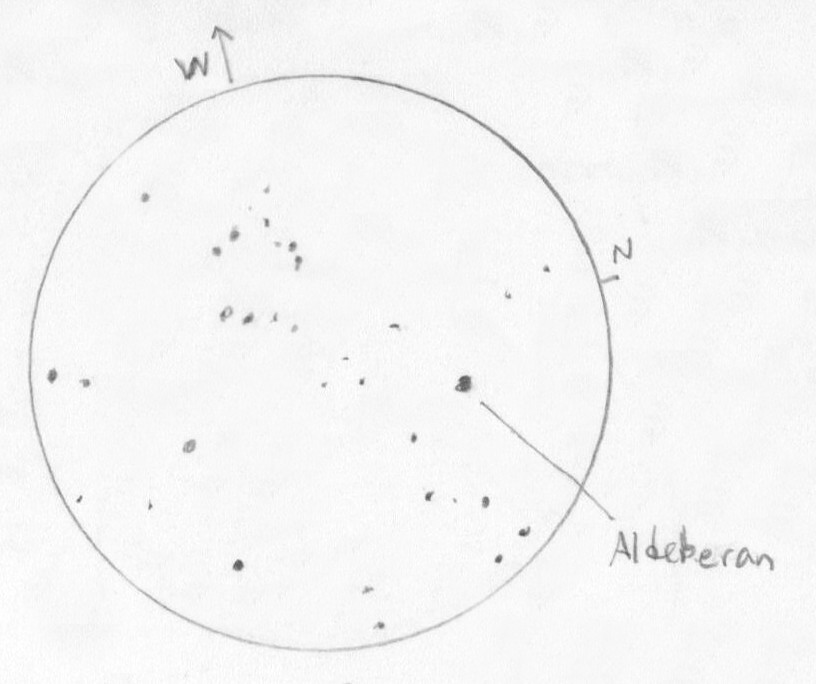 W
N
Aldeberan